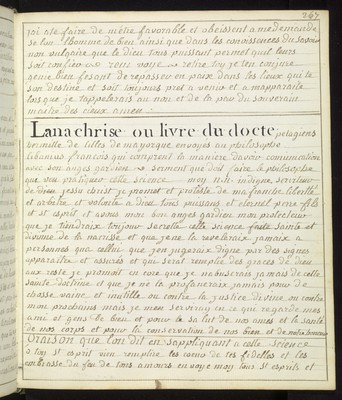 247
j'ai ete faire de m'etre favorable et obeissent a me demande
se lon l'homme de bien ainsi que dans les connaissences du
non vulgaire que le dieu tous puissant permet quil leurs
soit confiee renvoye retire toy je ten conjure
genie bien fesant de repasser en paix dans les lieux qui te
son destine et soit toujours pret a venir et a m'apparaitre
lors que je t'appelerais au non et de la par du souverain
maitre des cieux amen
Lanachrise ou livre du docte pelagiens
hermitte de l'illes de mayorque envoyes au philosophe
libanius francois qui comprent la maniere davoir comunication
avec son anges gardien serment que doit faire le philosophe
que veu pratiquer cette science moy N indigne serviteur
de dieu jesus christ je promet et proteste de ma franche liberté
et arbitre et volonté a dieu tous puissans et eternel pere fils
et st esprit et a vous mon bon anges gardien mon protecteur
que je tiendraix toujour secrette cette science sacrée sainte et
divine de la nacrise et que je ne la revelleraix jamaix a
personnes que celluy que jen jugeraix digne par des signes
apparaitre et assurés et qui serat remplie des graces de dieu
aux reste je promait encore que je n'abuserais jamais de cette
sainte doctrine et que je ne la profaneraix jamais pour de
chosse vaine et inutille ou contre la justice divine ou contre
mon prochains mais je men servirai en ce qui regarde mes
ami et gens de bien et pour le salut de nos ames et la santé
de nos corps et pour la conservation de nos bien et de notre honneur
Oraison que lon dit en s'appliquant a cette science
ô ton st esprit vien remplire les coeur de tes fidelles et les
embrasse du feu de ton amour envoye moy ton st esprits et